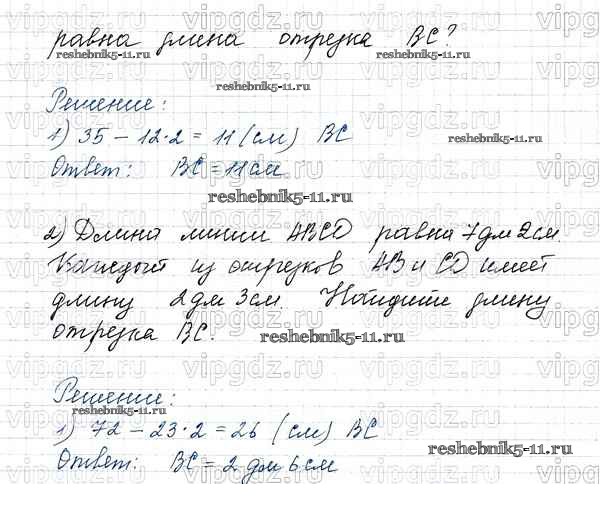 равна длина отрезка BC?
reshebnik5-11.ru reshebnik5-11.ru
reshebnik5-11.ru
Решение:
1) 35 – 12·2 = 11 (см) BC
reshebnik5-11.ru
Ответ: BC = 11 см
reshebnik5-11.ru
2) Длина линии ABCD равна 7 дм 2 см.
Каждый из отрезков AB и CD имеет
длину 2 дм 3 см. Найдите длину
отрезка BC.
reshebnik5-11.ru
Решение:
reshebnik5-11.ru
1) 72 – 23·2 = 26 (см) BC
reshebnik5-11.ru
Ответ: BC = 2 дм 6 см
vipgdz.ru